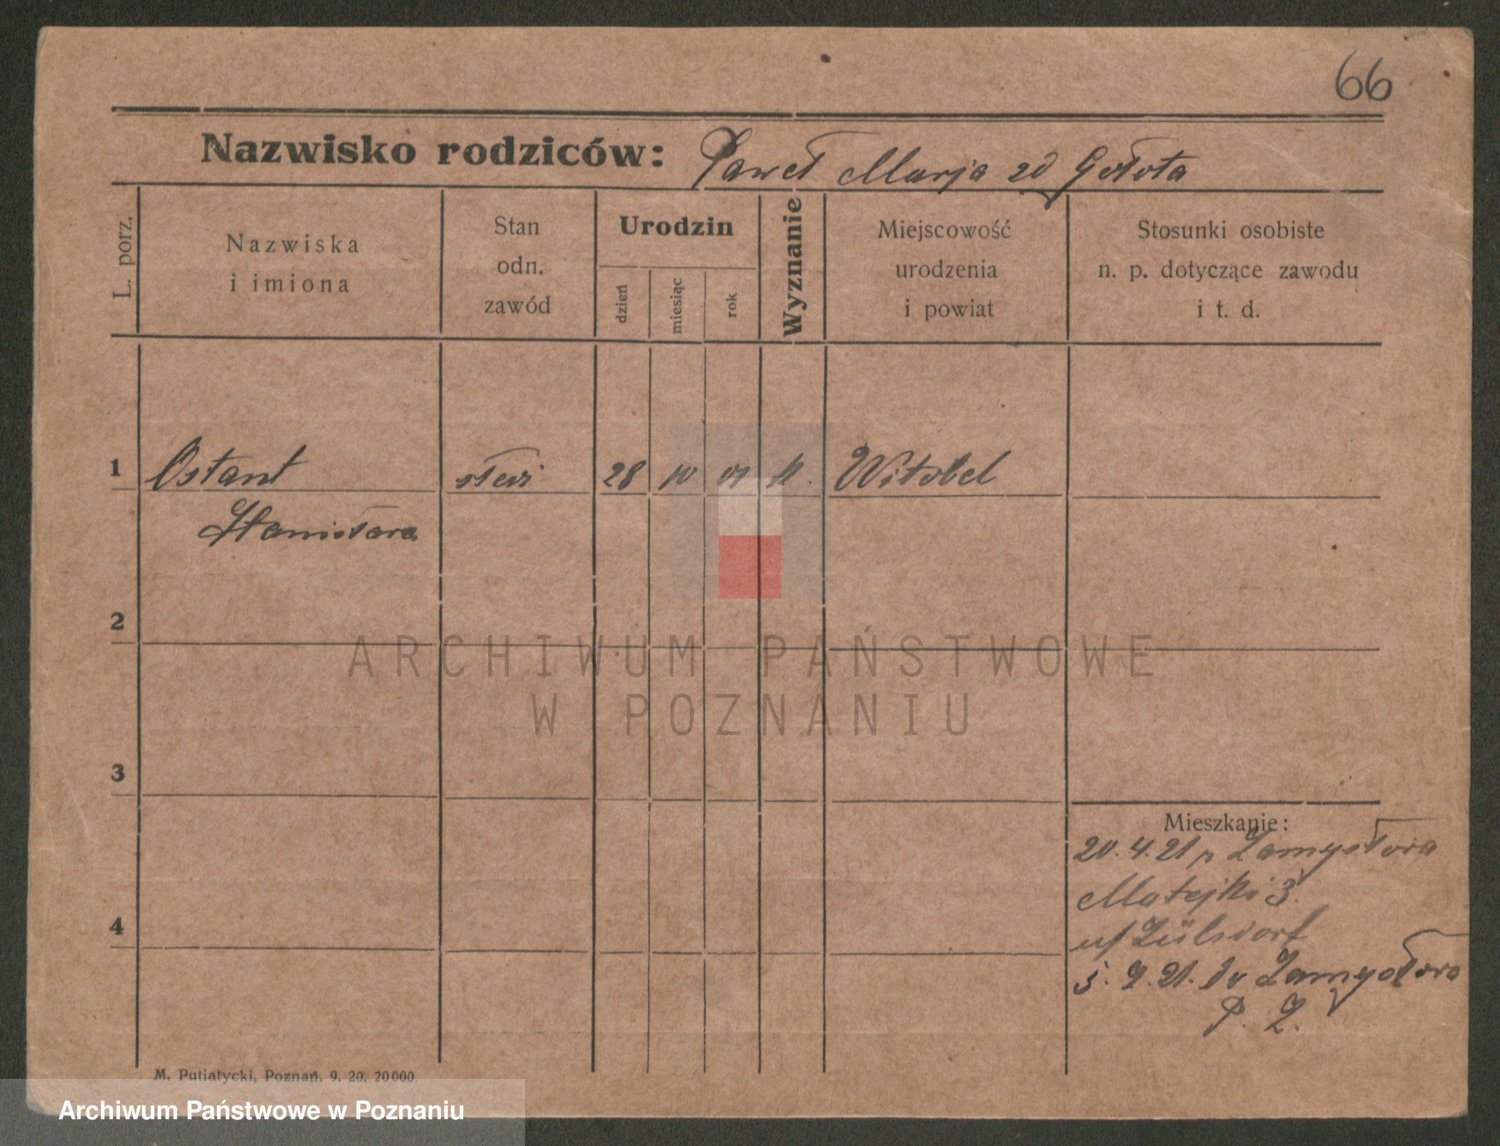 66
Nazwisko rodziców: Paweł Marja zd Gołota
L. porz.
Nazwiska
i imiona
Stan
odn.
zawód
Urodzin
dzień
miesiąc
rok
Wyznanie
Miejscowość
urodzenia
i powiat
Stosunki osobiste
n. p. dotyczące zawodu
i t. d.
1 Ostant 28 10 01 k. Witobel
Stanisława
2
3
4
Mieszkanie:
20.4.21 p Zamysłowa
Matejki 3.
u/ Zülsdorf
5. 7. 21. do Zamysłowo
P. Z.
M. Putiatycki, Poznań. 9. 20. 20000.
ARCHIWUM PAŃSTWOWE
W POZNANIU
Archiwum Państwowe w Poznaniu